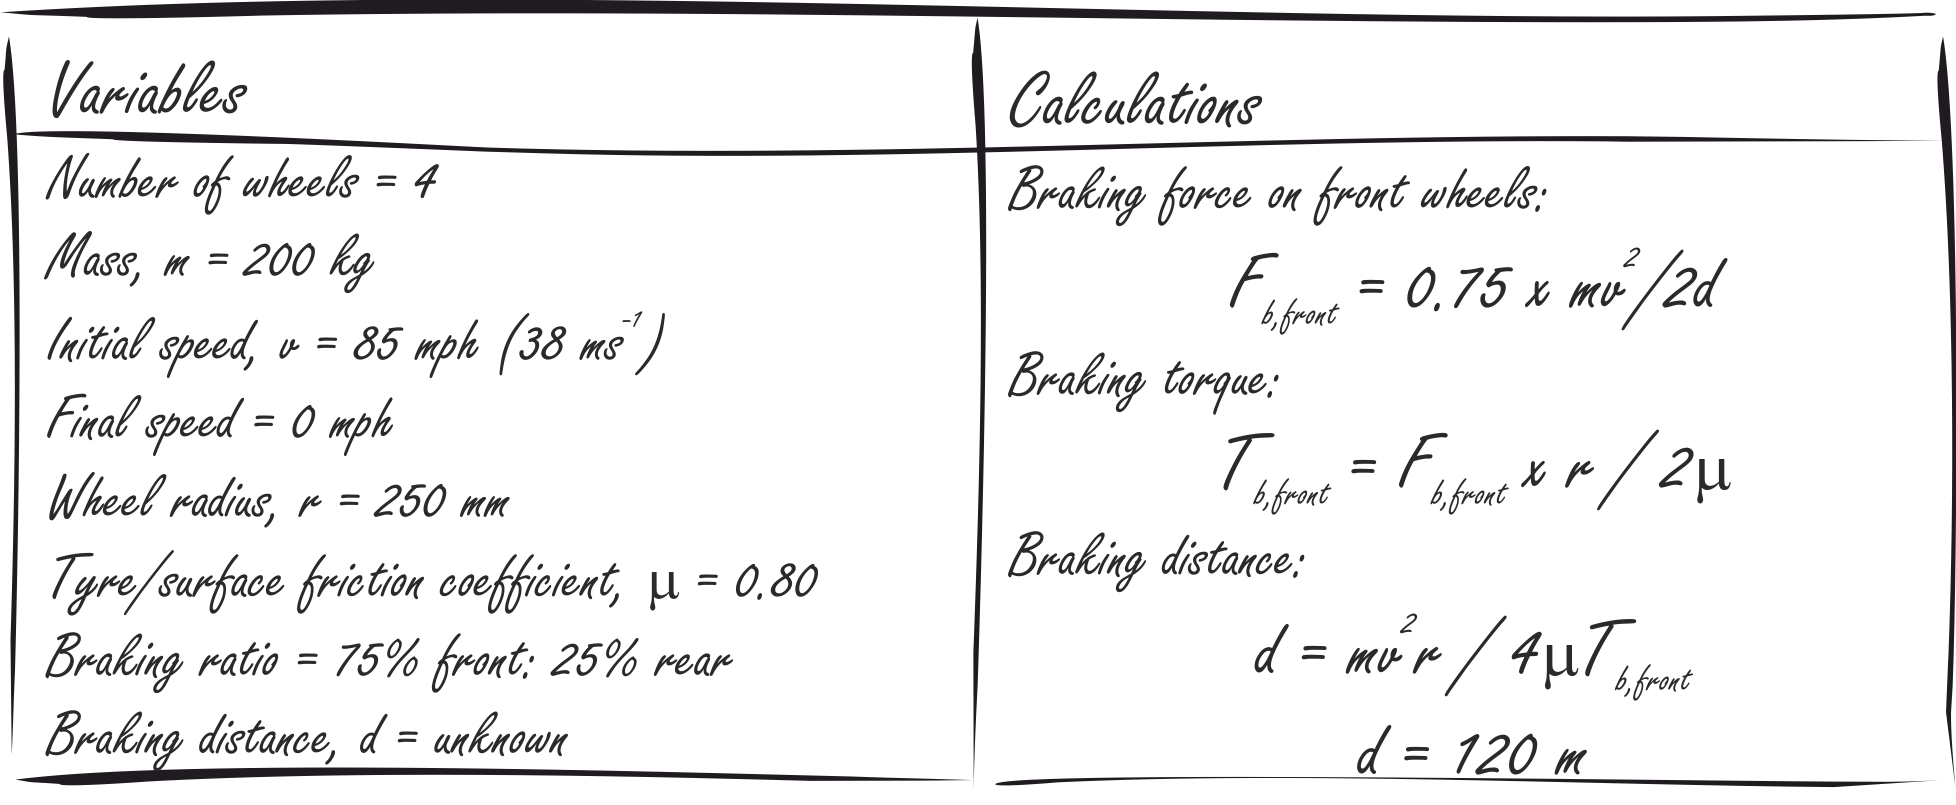 Variables
Number of wheels = 4
Mass, m = 200 kg
Initial speed, v = 85 mph (38 ms⁻¹)
Final speed = 0 mph
Wheel radius, r = 250 mm
Tyre/surface friction coefficient, µ = 0.80
Braking ratio = 75% front: 25% rear
Braking distance, d = unknown
Calculations
Braking force on front wheels:
F b,front = 0.75 x mv²/2d
Braking torque:
T b,front = F b,front x r / 2µ
Braking distance:
d = mv²r / 4µT b,front
d = 120 m